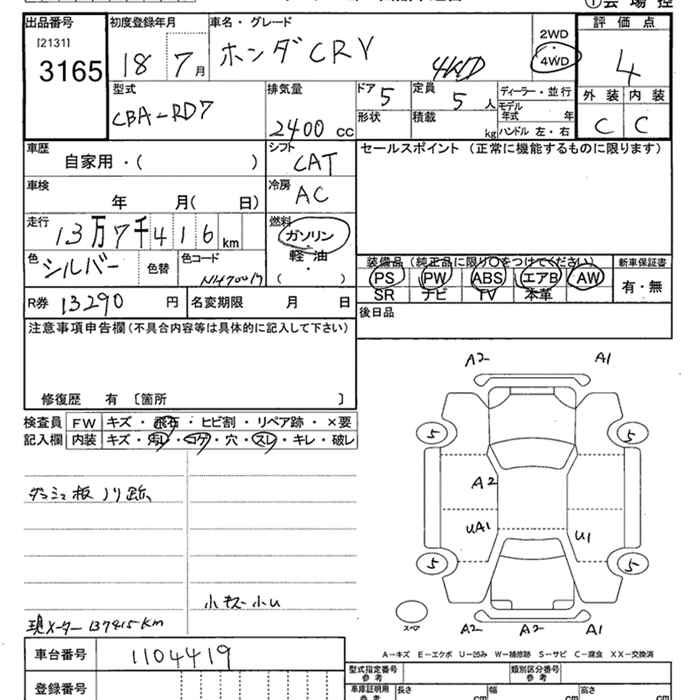 出品番号 初度登録年月 車名・グレード 評価点
[2131]
3165 18 7月 ホンダCRV 4WD 2WD 4WD 4
型式 排気量 ドア 定員 ディーラー・並行 外装 内装
CBA-RD7 2400 cc 5 5人 モデル年式 年 C C
形状 積載 kg ハンドル 左・右
車歴 シフト セールスポイント(正常に機能するものに限ります)
自家用・( ) CAT
車検 冷房
年 月( 日) AC
走行 燃料
13万7千416km ガソリン
軽・油
色 色替 色コード ・ 装備品(純正品に限り○をつけてください) 新車保証書
シルバー NH700M ( ) PS PW ABS エアB AW 有・無
SR ナビ TV 本革
R券 13290円 名変期限 月 日 後日品
注意事項申告欄(不具合内容等は具体的に記入して下さい)
修復歴 有 〔箇所 〕
検査員 FW キズ・飛石・ヒビ割・リペア跡・×要
記入欄 内装 キズ・汚レ・コゲ・穴・スレ・キレ・破レ
A2 A1
5 5
ダッシュ板ノリ跡、
A2
UA1 U1
5 5
小キズ小U
現メーター137415km
スペア A2 A2 A1
A-キズ E-エクボ U-凹み W-補修跡 S-サビ C-腐食 XX-交換済
車台番号 1104419
型式指定番号 参考 類別区分番号 参考
登録番号 車庫証明用 参考 長さ cm 幅 cm 高さ cm